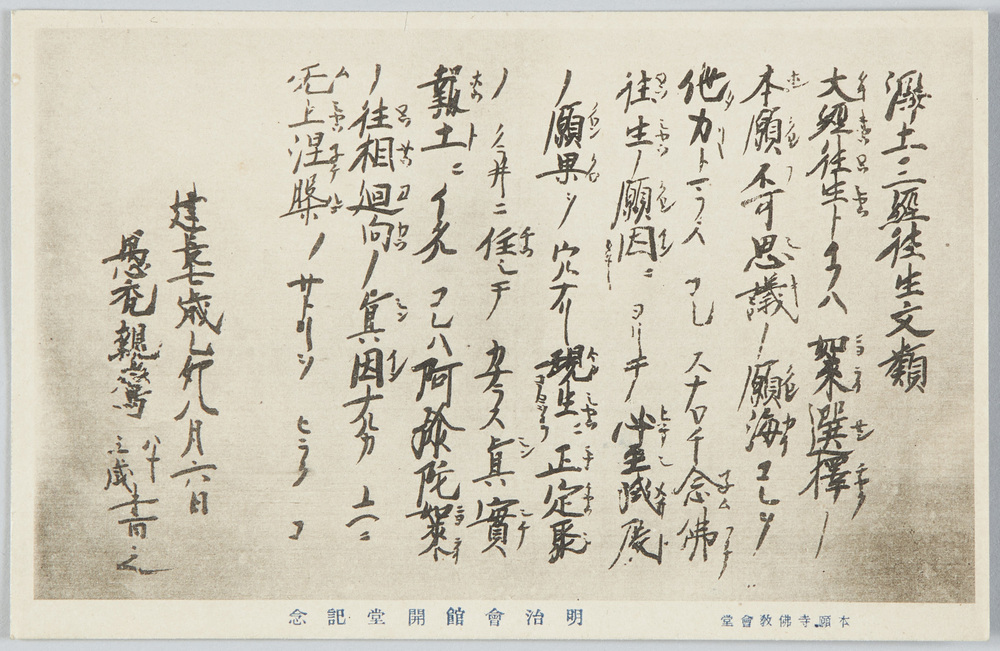 淨土三經往生文類
大經往生トイフハ如來選擇ノ
本願不可思議ノ願海コレヲ
他力トマフスコレスナワチ念佛
往生ノ願因ニヨリテ必至滅度
ノ願果ヲウルナリ現生ニ正定聚
ノクラ井ニ住シテカナラス眞實
報土ニイタルコレハ阿彌陀如來
ノ往相廻向ノ眞因ナルカユヘニ
无上涅槃ノサトリヲヒラクコ
建長七歳乙卯八月六日
愚禿親鸞 八十三歳書之
本願寺佛教會堂
明治會館開堂記念